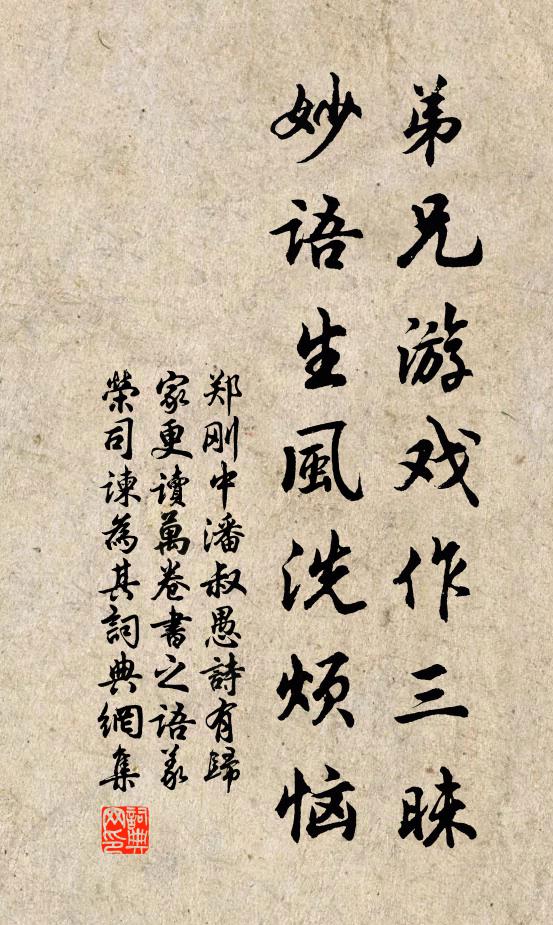 弟兄游戏作三昧
妙语生風洗烦恼
郑刚中潘叔愚詩有歸
家更讀萬卷書之语义
榮司谏為其詞典網集
詞典网印